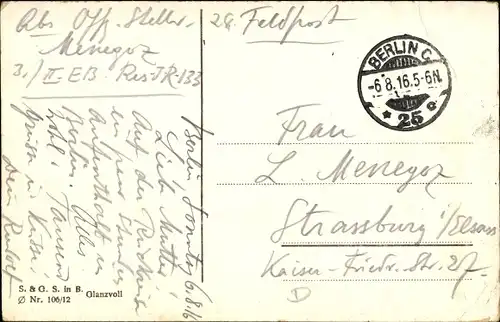 Abs Off. Stellv.
Menegoz
3./II-EB. Res-IR-133
z. Feldpost
BERLIN C.
-6.8.16.5-6N.
* 25 o
Berlin, Sonntag 6/8.16
Liebe Mutter!
Auf der Rückreise
ein paar Stunden
Aufenthalt in
Berlin. Alles
wohl. Tausend
Grüße u. Küsse!
Dein Rudolf
Frau
L. Menegoz
Strassburg i/Elsass
Kaiser-Friedr.-Str. 27
D
S. & G. S. in B.
Ø Nr. 106/12 Glanzvoll